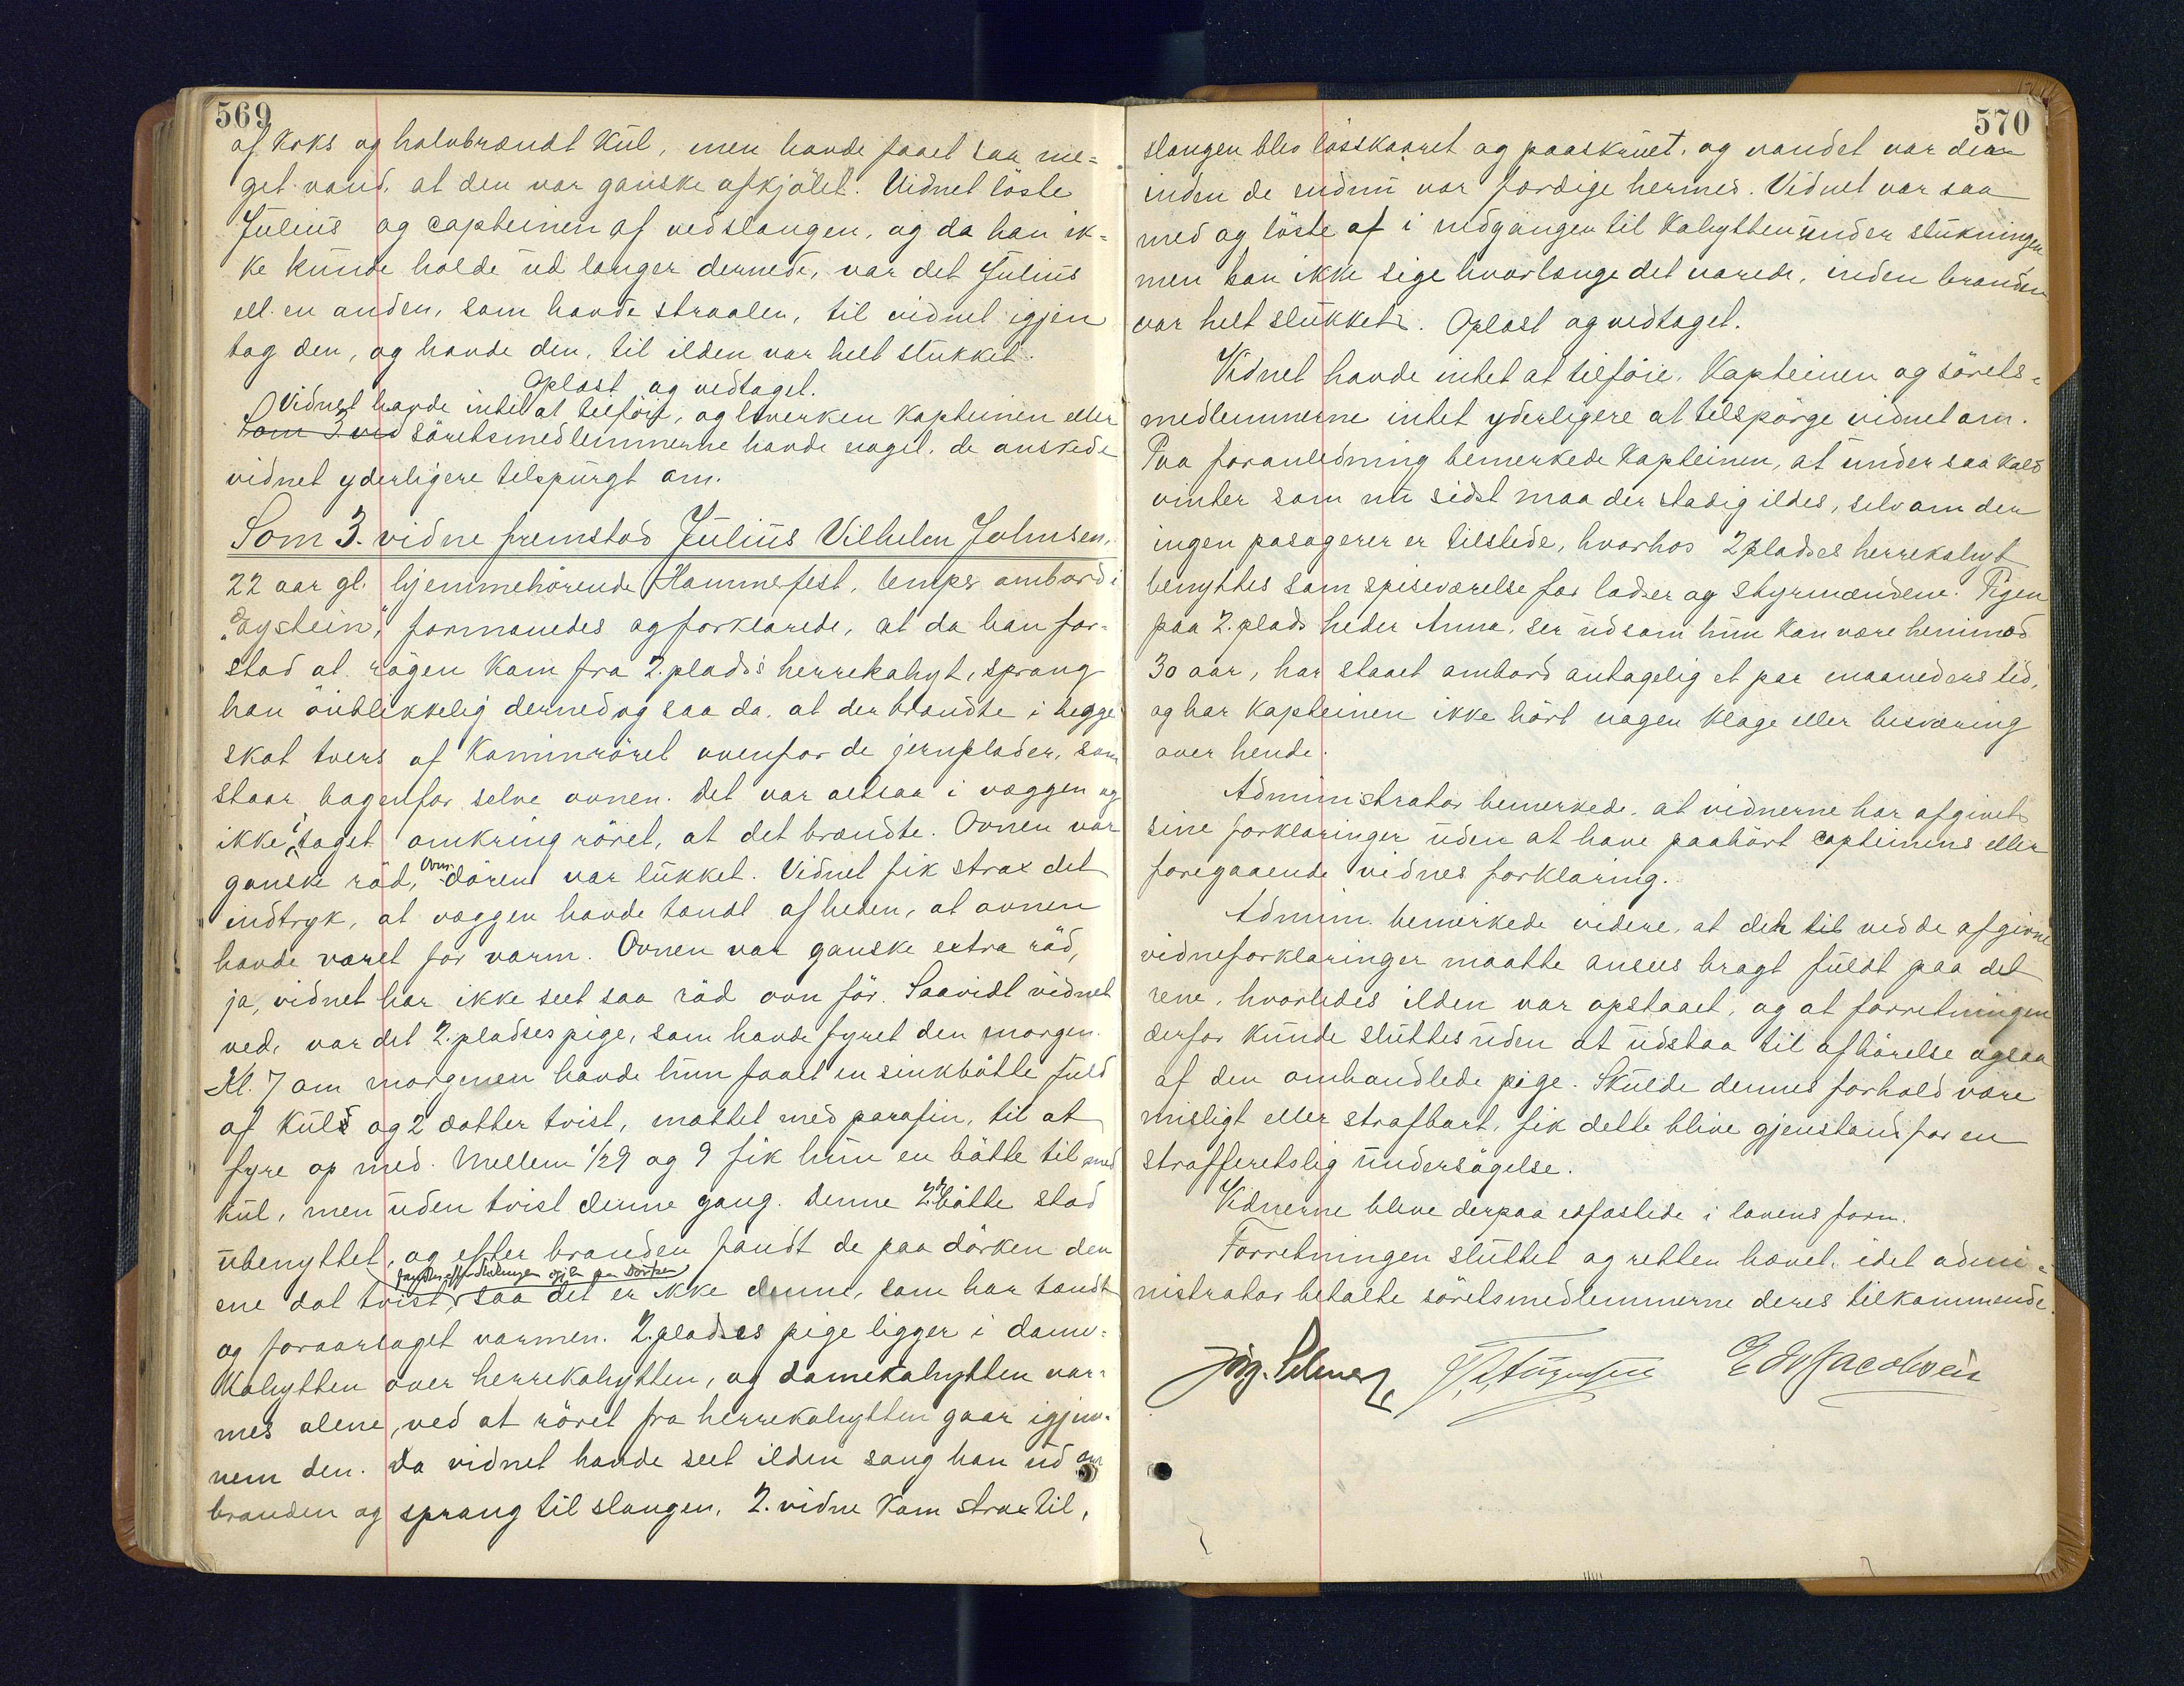 569
af koks og halvbrændt kul, men havde faaet saa me=
get vand, at den var ganske afkjölet. Vidnet löste
Julius og capteinen af ved slangen, og da han ik=
ke kunde holde ud længer dernede, var det Julius
ell. en anden, som havde straalen, til vidnet igjen
tog den, og havde den, til ilden var helt slukket.
Oplæst og vedtaget.
Vidnet havde intet at tilföie, og hverken kapteinen eller
Som 3 vid söretsmedlemmerne havde noget, de önskede
vidnet yderligere tilspurgt om.
Som 3. vidne fremstod Julius Vilhelm Johnsen,
22 aar gl. hjemmehörende Hammerfest, lemper ombord i
"Eystein", formanedes og forklarede, at da han for=
stod at rögen kom fra 2. plads's herrekahyt, sprang
han öieblikkelig derned og saa da, at der brændte i begge
skot tvers af kaminröret ovenfor de jernplader, som
staar bagenfor selve ovnen. Det var altsaa i væggen og
ikke i taget omkring röret, at det brændte. Ovnen var
ganske röd, ovnsdören var lukket. Vidnet fik strax det
indtryk, at væggen havde tændt af heden, at ovnen
havde været for varm. Ovnen var ganske extra röd,
ja, vidnet har ikke seet saa röd ovn för. Saavidt vidnet
ved, var det 2. pladses pige, som havde fyret den morgen.
Kl. 7 om morgenen havde hun faaet en sinkbötte fuld
af kuls og 2 dotter tvist, mættet med parafin, til at
fyre op med. Mellem 1/29 og 9 fik hun en bötte til med
kul, men uden tvist denne gang. Denne 2den bötte stod
ubenyttet, og efter branden fandt de paa dörken den
ene dot tvist, saa det er ikke denne, som har tændt
og foraarsaget varmen. 2. pladses pige ligger i dame=
kahytten over herrekahytten, og damekahytten var=
mes alene, ved at röret fra herrekahytten gaar igjen=
nem den. Da vidnet havde seet ilden sang han ud om
branden og sprang til slangen. 2. vidne kom strax til,
570
slangen blev lösskaaret og paaskruet, og vandet var der
inden de endnu var færdige hermed. Vidnet var saa
med og löste af i nedgangen til kahytten under slukningen
men kan ikke sige hvorlænge det varede, inden branden
var helt slukket. Oplæst og vedtaget.
Vidnet havde intet at tilföie. Kapteinen og sörets=
medlemmerne intet yderligere at tilspörge vidnet om.
Paa foranledning bemerkede kapteinen, at under saa kold
vinter som nu sidst maa der stadig ildes, selv om der
ingen pasagerer er tilstede, hvorhos 2 pladses herrekahyt
benyttes som spiseværelse for lodser og styrmændene. Pigen
paa 2. plads heder Anna, ser ud som hun kan være henimod
30 aar, har staaet ombord antagelig et par maaneders tid,
og har kapteinen ikke hört nogen klage eller besværing
over hende.
Administrator bemerkede, at vidnerne har afgivet
sine forklaringer uden at have paahört capteinens eller
foregaaende vidnes forklaring.
Admin. bemerkede videre, at det ved de afgivne
vidneforklaringer maatte ansees bragt fuldt paa det
rene, hvorledes ilden var opstaaet, og at forretningen
derfor kunde sluttes uden at udstaa til afhörelse ogsaa
af den omhandlede pige. Skulde dennes forhold være
misligt eller strafbart, fik dette blive gjenstand for en
strafferetslig undersögelse.
Vidnerne bleve derpaa edfæstede i lovens form.
Forretningen sluttet og retten hævet, idet admi=
nistrator betalte söretsmedlemmerne deres tilkommende.
Jörg. Selmer Edv Jacobsen